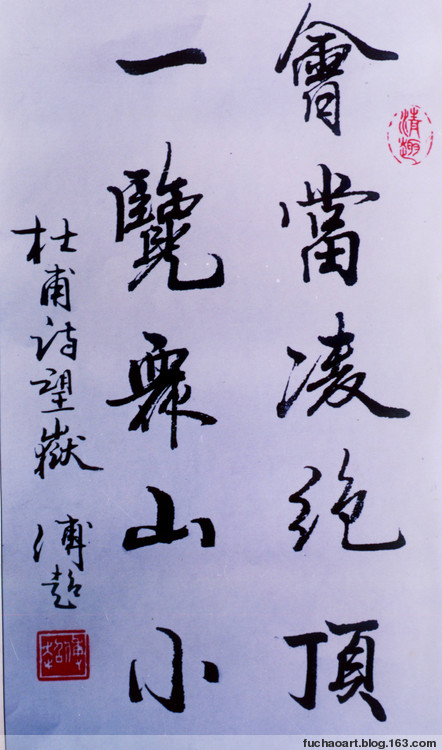 會當凌絕頂
一覽眾山小
杜甫诗望嶽 傅超
清趣
fuchaoart.blog.163.com